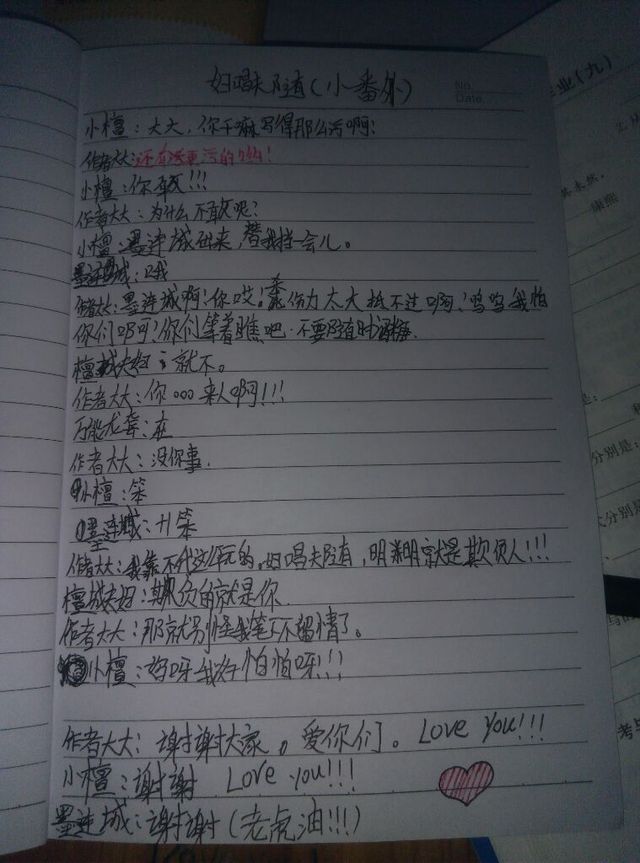 妇唱夫随(小番外)
No.
Date.
小檀:大大,你干嘛写得那么污啊!
作者大大:还有更污的呦!
小檀:你敢!!!
作者大大:为什么不敢呢?
小檀:墨连城出来,替我挡一会儿。
墨连城:哦
作者大大:墨连城啊!你哎!杀伤力太大抵不过啊!呜呜我怕
你们啊!你们等着瞧吧.不要随时
檀城夫妇:就不。
作者大大:你ooo来人啊!!!
万能龙套:在
作者大大:没你事.
小檀:笨
墨连城:+1笨
作者大大:我靠不代这么玩的.妇唱夫随,明明就是欺负人!!!
檀城夫妇:欺负的就是你
作者大大:那就别怪我笔下不留情了。
小檀:好呀我好怕怕呀!!!
作者大大:谢谢大家。爱你们。Love you!!!
小檀:谢谢 Love you!!!
墨连城:谢谢(老虎油!!!)
业(九)
康熙
是:
分别是: